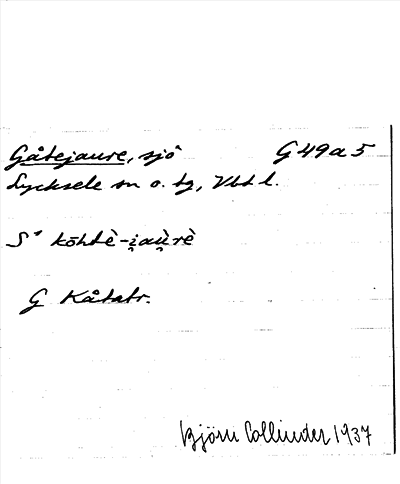 Gåtejaure, sjö G49a5
Lycksele sn o. tg, Vbt l.
S° kōhtè-i̯au̯rè
G Kåtatr.
Björn Collinder 1937